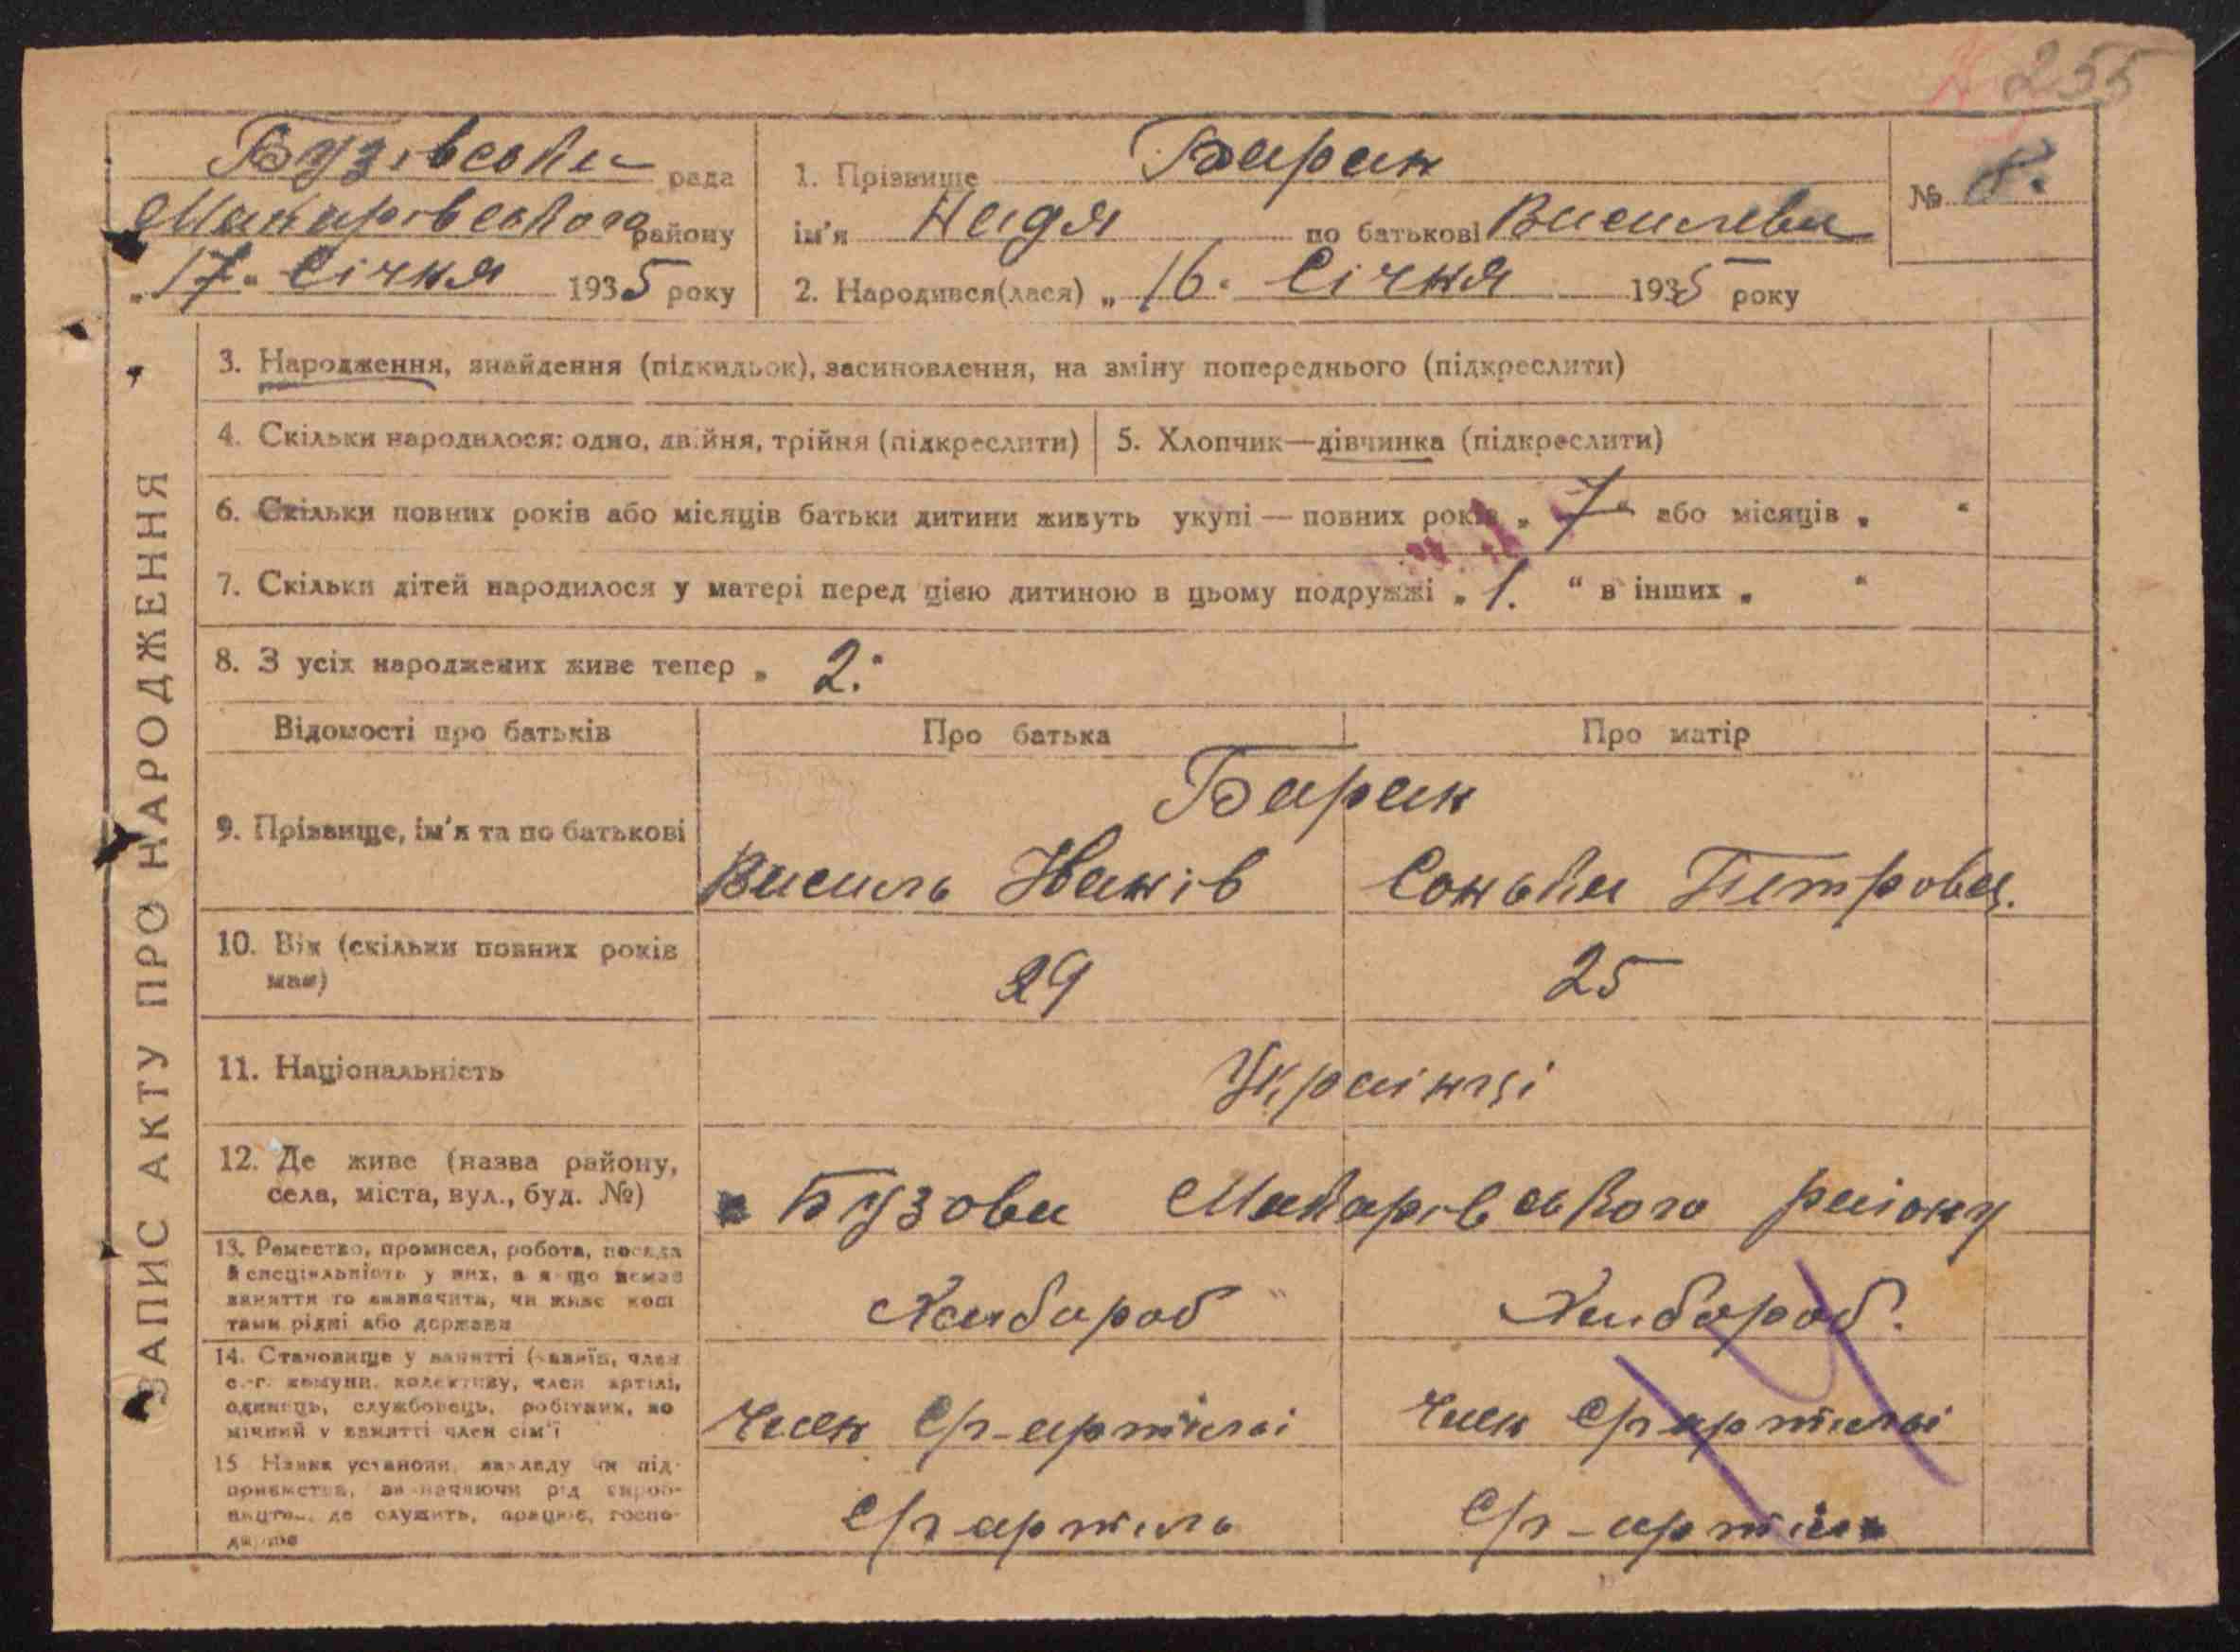 255
Бузівська рада
Макарівського району
„17“ Січня 1935 року
1. Прізвище Баран
ім'я Надя по батькові Василева
№ 8.
2. Народився(лася) „16“ Січня 1935 року
ЗАПИС АКТУ ПРО НАРОДЖЕННЯ
3. Народження, знайдення (підкидьок), засиновлення, на зміну попереднього (підкреслити)
4. Скільки народилося: одно, двійня, трійня (підкреслити)
5. Хлопчик—дівчинка (підкреслити)
6. Скільки повних років або місяців батьки дитини живуть укупі — повних років „7“ або місяців „ “
7. Скільки дітей народилося у матері перед цією дитиною в цьому подружжі „1.“ в інших „ “
8. З усіх народжених живе тепер „2.“
Відомості про батьків Про батька Про матір
9. Прізвище, ім'я та по батькові
Баран
Василь Іванів Сонька Петрова.
10. Вік (скільки повних років має)
29 25
11. Національність
Українці
12. Де живе (назва району,
села, міста, вул., буд. №)
Бузова Макарівського району
13. Ремество, промисел, робота, посада
й спеціяльність у них, а якщо немає
заняття то зазначити, чи живе кош
тами рідні або держави
Хлібороб Хлібороб.
14. Становище у занятті (хазяїн, член
с.-г. комуни, колективу, член артілі,
одинець, службовець, робітник, по
мічний у занятті член сім'ї
Член С/г-артілі Член С/г артілі
15 Назва установи, закладу чи під-
приємства, зазначаючи рід вироб-
ництва, де служить, працює, госпо-
дарює
С/г артіль С/г-артіль